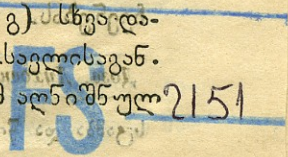 გ) სხვადა-
სავლისაგან.
აღნიშნულ 2151
FS